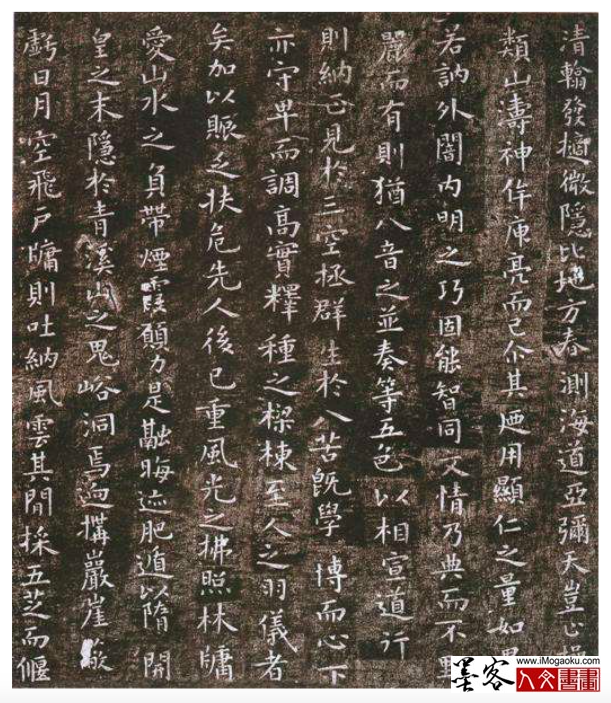 清翰發擿微隱比地方春測海道亞彌天豈止操
類山濤神侔庾亮而已介其煙用顯仁之量如
若訥外闇內明之巧固能智同文情乃典而不野
麗而有則猶八音之並奏等五色以相宣道行
則納正見於三空拯群生於八苦既學博而心下
亦守卑而調高實釋種之樑棟至人之羽儀者
矣加以賑乏扶危先人後己重風光之拂照林牖
愛山水之負帶煙霞願力是融晦迹肥遁以隋開
皇之末隱於青溪山之鬼峪洞焉迥構巖崖蔽
虧日月空飛戶牖則吐納風雲其間採五芝而偃
www.iMogaoku.com
墨客人文書畫